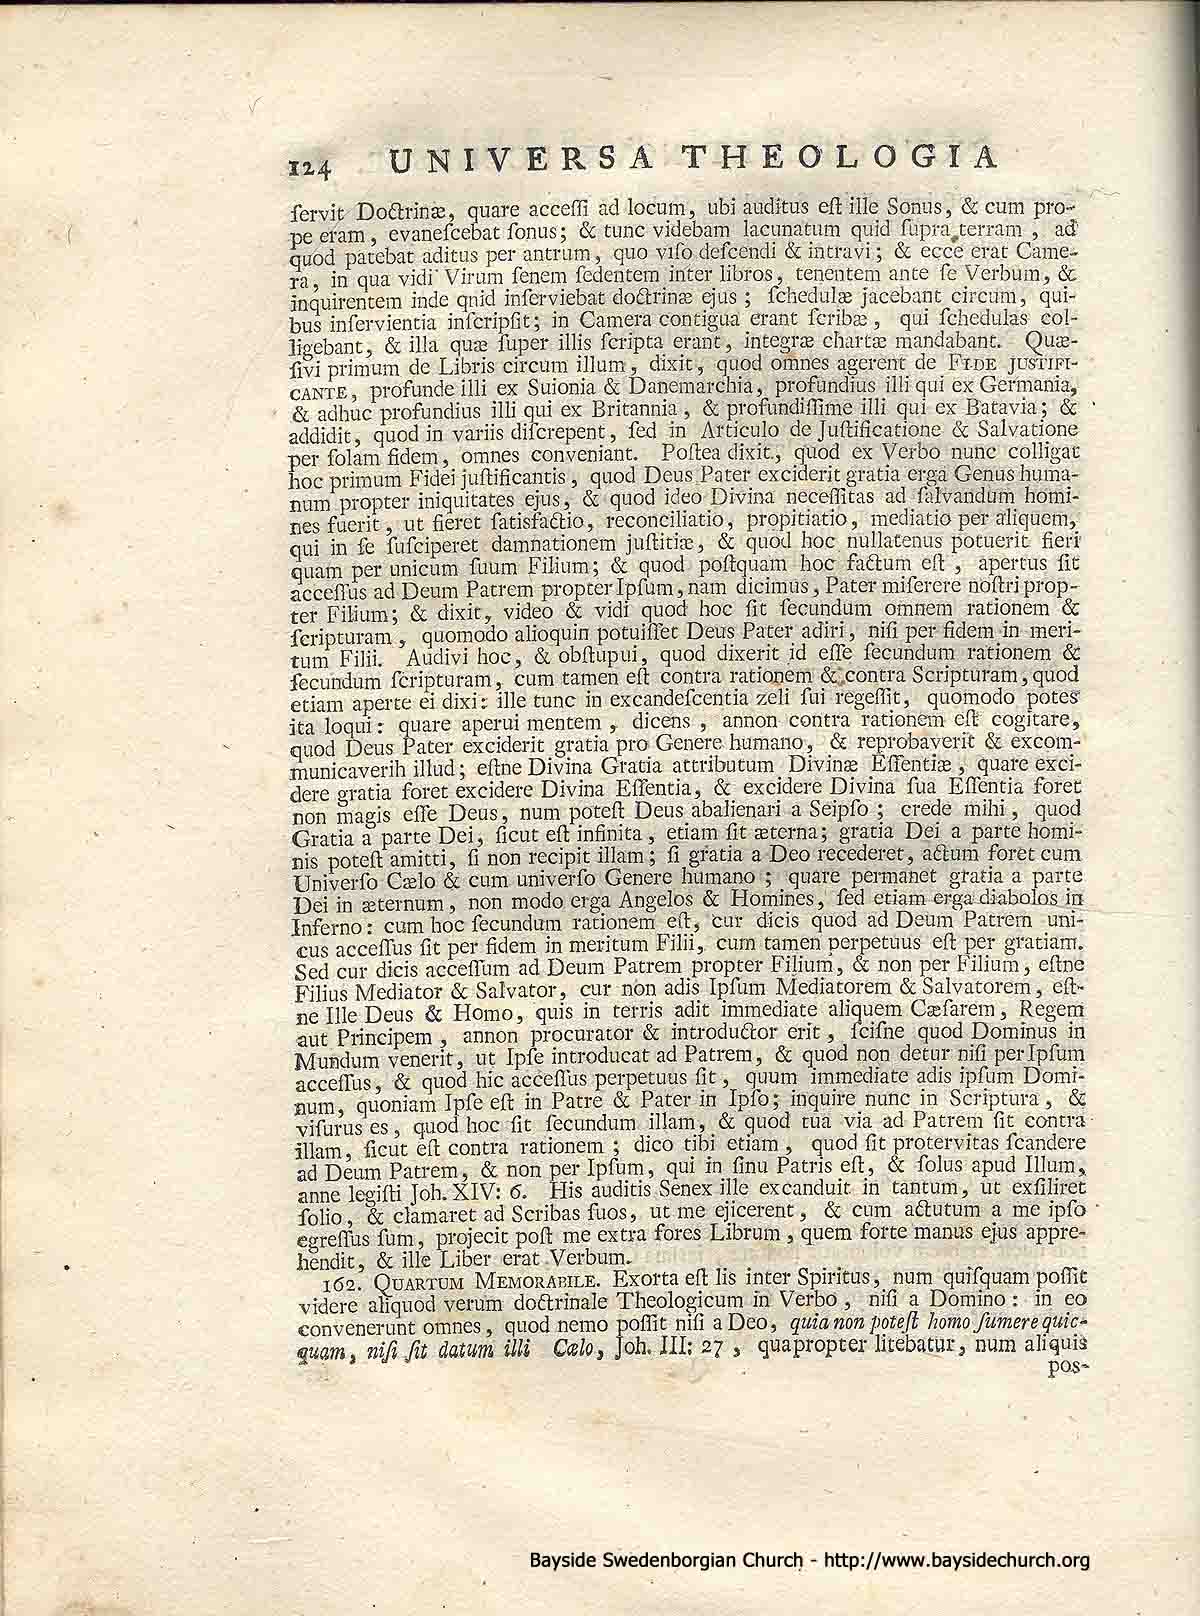 124 UNIVERSA THEOLOGIA
ſervit Doctrinæ, quare acceſſi ad locum, ubi auditus eſt ille Sonus, & cum pro-
pe eram, evaneſcebat ſonus; & tunc videbam lacunatum quid ſupra terram, ad
quod patebat aditus per antrum, quo viſo deſcendi & intravi; & ecce erat Came-
ra, in qua vidi Virum ſenem ſedentem inter libros, tenentem ante ſe Verbum, &
inquirentem inde qnid inſerviebat doctrinæ ejus; ſchedulæ jacebant circum, qui-
bus inſervientia inſcripſit; in Camera contigua erant ſcribæ, qui ſchedulas col-
ligebant, & illa quæ ſuper illis ſcripta erant, integræ chartæ mandabant. Quæ-
ſivi primum de Libris circum illum, dixit, quod omnes agerent de FIDE JUSTIFI-
CANTE, profunde illi ex Suionia & Danemarchia, profundius illi qui ex Germania,
& adhuc profundius illi qui ex Britannia, & profundiſſime illi qui ex Batavia; &
addidit, quod in variis diſcrepent, ſed in Articulo de Juſtificatione & Salvatione
per ſolam fidem, omnes conveniant. Poſtea dixit, quod ex Verbo nunc colligat
hoc primum Fidei juſtificantis, quod Deus Pater exciderit gratia erga Genus huma-
num propter iniquitates ejus, & quod ideo Divina neceſſitas ad ſalvandum homi-
nes fuerit, ut fieret ſatisfactio, reconciliatio, propitiatio, mediatio per aliquem,
qui in ſe ſuſciperet damnationem juſtitiæ, & quod hoc nullatenus potuerit fieri
quam per unicum ſuum Filium; & quod poſtquam hoc factum eſt, apertus ſit
acceſſus ad Deum Patrem propter Ipſum, nam dicimus, Pater miſerere noſtri prop-
ter Filium; & dixit, video & vidi quod hoc ſit ſecundum omnem rationem &
ſcripturam, quomodo alioquin potuiſſet Deus Pater adiri, niſi per fidem in meri-
tum Filii. Audivi hoc, & obſtupui, quod dixerit id eſſe ſecundum rationem &
ſecundum ſcripturam, cum tamen eſt contra rationem & contra Scripturam, quod
etiam aperte ei dixi: ille tunc in excandeſcentia zeli ſui regeſſit, quomodo potes
ita loqui: quare aperui mentem, dicens, annon contra rationem eſt cogitare,
quod Deus Pater exciderit gratia pro Genere humano, & reprobaverit & excom-
municaverih illud; eſtne Divina Gratia attributum Divinæ Eſſentiæ, quare exci-
dere gratia foret excidere Divina Eſſentia, & excidere Divina ſua Eſſentia foret
non magis eſſe Deus, num poteſt Deus abalienari a Seipſo; crede mihi, quod
Gratia a parte Dei, ſicut eſt infinita, etiam ſit æterna; gratia Dei a parte homi-
nis poteſt amitti, ſi non recipit illam; ſi gratia a Deo recederet, actum foret cum
Univerſo Cælo & cum univerſo Genere humano; quare permanet gratia a parte
Dei in æternum, non modo erga Angelos & Homines, ſed etiam erga diabolos in
Inferno: cum hoc ſecundum rationem eſt, cur dicis quod ad Deum Patrem uni-
cus acceſſus ſit per fidem in meritum Filii, cum tamen perpetuus eſt per gratiam.
Sed cur dicis acceſſum ad Deum Patrem propter Filium, & non per Filium, eſtne
Filius Mediator & Salvator, cur non adis Ipſum Mediatorem & Salvatorem, eſt-
ne Ille Deus & Homo, quis in terris adit immediate aliquem Cæſarem, Regem
aut Principem, annon procurator & introductor erit, ſciſne quod Dominus in
Mundum venerit, ut Ipſe introducat ad Patrem, & quod non detur niſi per Ipſum
acceſſus, & quod hic acceſſus perpetuus ſit, quum immediate adis ipſum Domi-
num, quoniam Ipſe eſt in Patre & Pater in Ipſo; inquire nunc in Scriptura, &
viſurus es, quod hoc ſit ſecundum illam, & quod tua via ad Patrem ſit contra
illam, ſicut eſt contra rationem; dico tibi etiam, quod ſit protervitas ſcandere
ad Deum Patrem, & non per Ipſum, qui in ſinu Patris eſt, & ſolus apud Illum,
anne legiſti Joh. XIV: 6. His auditis Senex ille excanduit in tantum, ut exſiliret
ſolio, & clamaret ad Scribas ſuos, ut me ejicerent, & cum actutum a me ipſo
egreſſus ſum, projecit poſt me extra fores Librum, quem forte manus ejus appre-
hendit, & ille Liber erat Verbum.
162. QUARTUM MEMORABILE. Exorta eſt lis inter Spiritus, num quiſquam poſſit
videre aliquod verum doctrinale Theologicum in Verbo, niſi a Domino: in eo
convenerunt omnes, quod nemo poſſit niſi a Deo, quia non poteſt homo ſumere quic-
quam, niſi ſit datum illi Cælo, Joh. III: 27, quapropter litebatur, num aliquis
pos-
Bayside Swedenborgian Church - http://www.baysidechurch.org